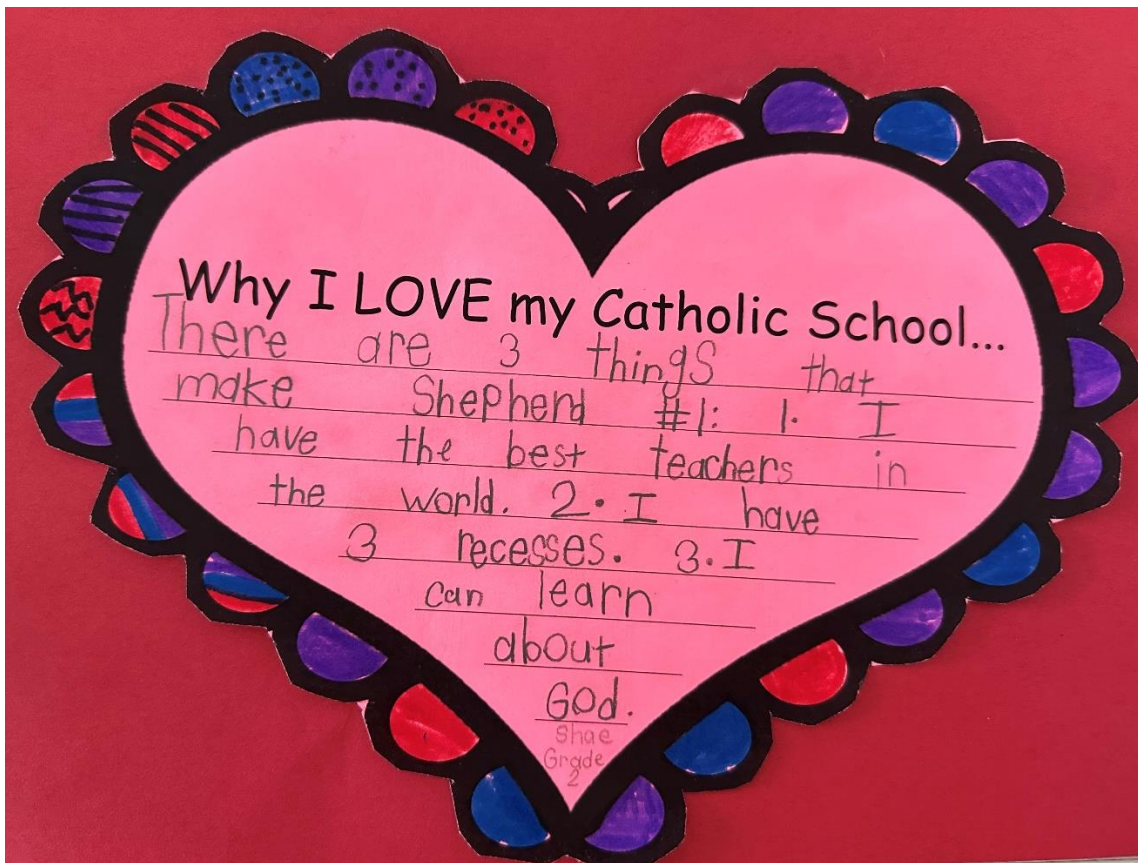 Why I LOVE my Catholic School...
There are 3 things that
make Shepherd #1: 1. I
have the best teachers in
the world. 2. I have
3 recesses. 3. I
can learn
about
God.
Shae
Grade
2